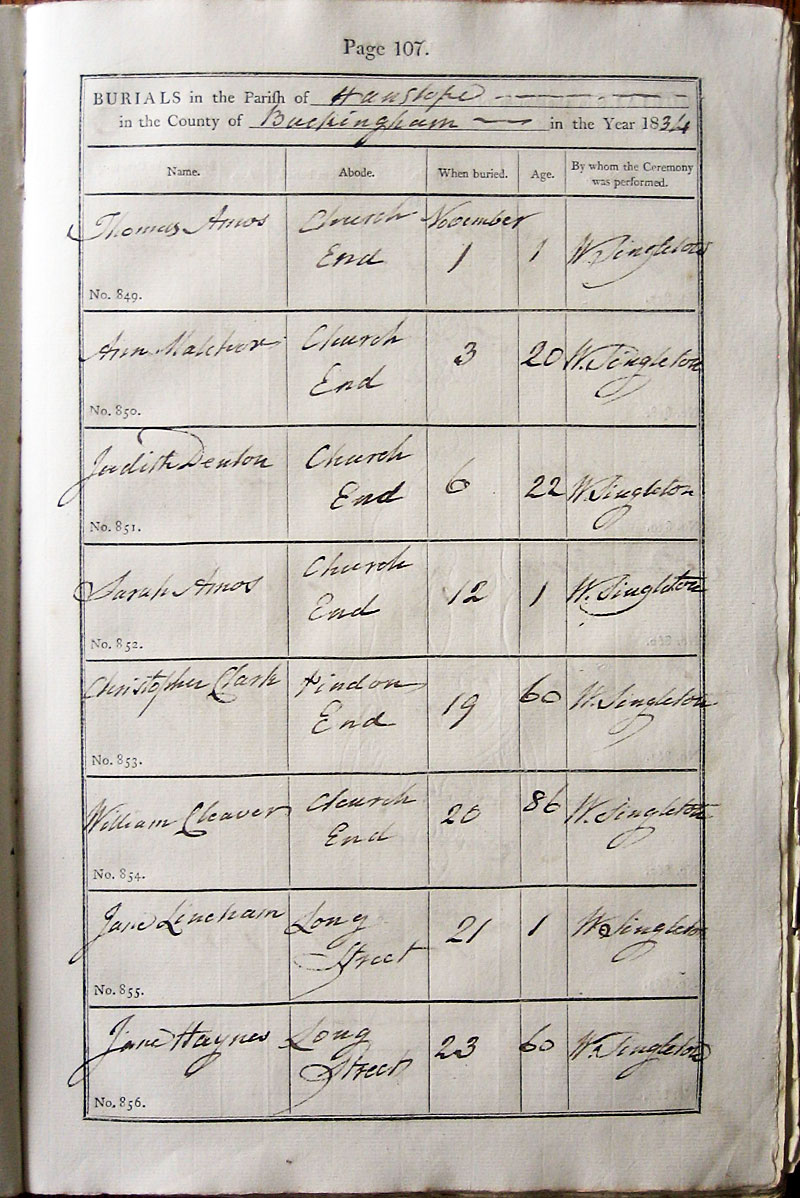 Page 107.
BURIALS in the Parish of Hanslope
in the County of Buckingham in the Year 1834
Name. Abode. When buried. Age. By whom the Ceremony was performed.
Thomas Amos Church End November 1 1 W. Singleton
No. 849.
Ann Church End 3 20 W. Singleton
No. 850.
Judith Denton Church End 6 22 W. Singleton
No. 851.
Sarah Amos Church End 12 1 W. Singleton
No. 852.
Christopher Clark Tindon End 19 60 W. Singleton
No. 853.
William Cleaver Church End 20 86 W. Singleton
No. 854.
Jane Lineham Long Street 21 1 W. Singleton
No. 855.
Jane Haynes Long Street 23 60 W. Singleton
No. 856.